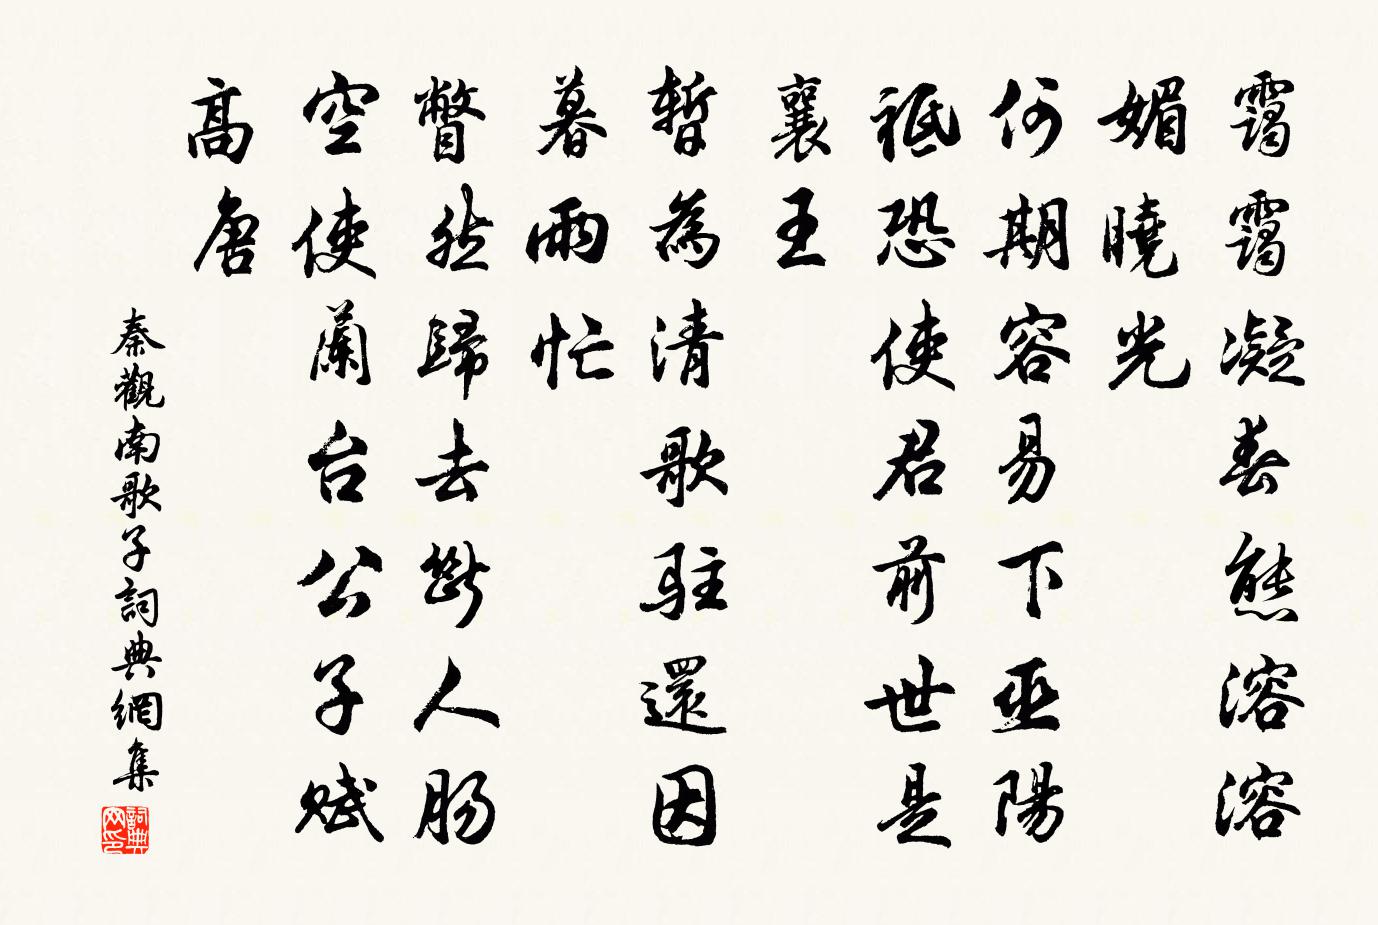 靄靄凝春態溶溶
媚曉光
何期容易下巫陽
祗恐使君前世是
襄王
暫為清歌駐還因
暮雨忙
瞥然歸去斷人腸
空使蘭台公子賦
高唐
秦觀南歌子詞典網集
詞典網印